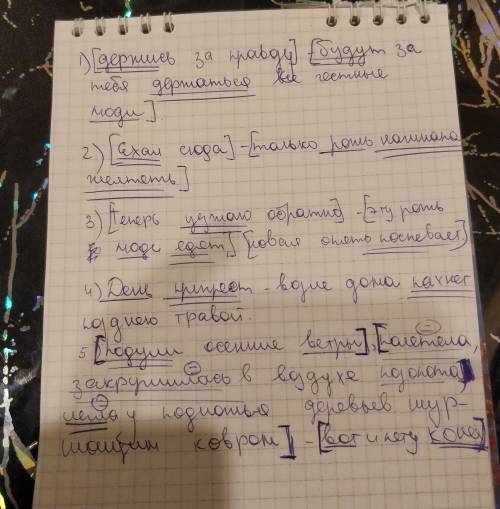 1) [держись за правду] - [будут за
тебя держаться все честные
люди]
2) [Ехал сюда] - [только рожь начинала
желтеть]
3) [Теперь уезжаю обратно] - [эту рожь
люди едят] [новая опять поспевает]
4) День припрёт - возле дома пахнет
травой.
5 [Подули осенние ветры], [полетела
закружилась в воздухе позолота]
легла у подножья деревьев шур-
шащим ковром] - [вот и лету конец]